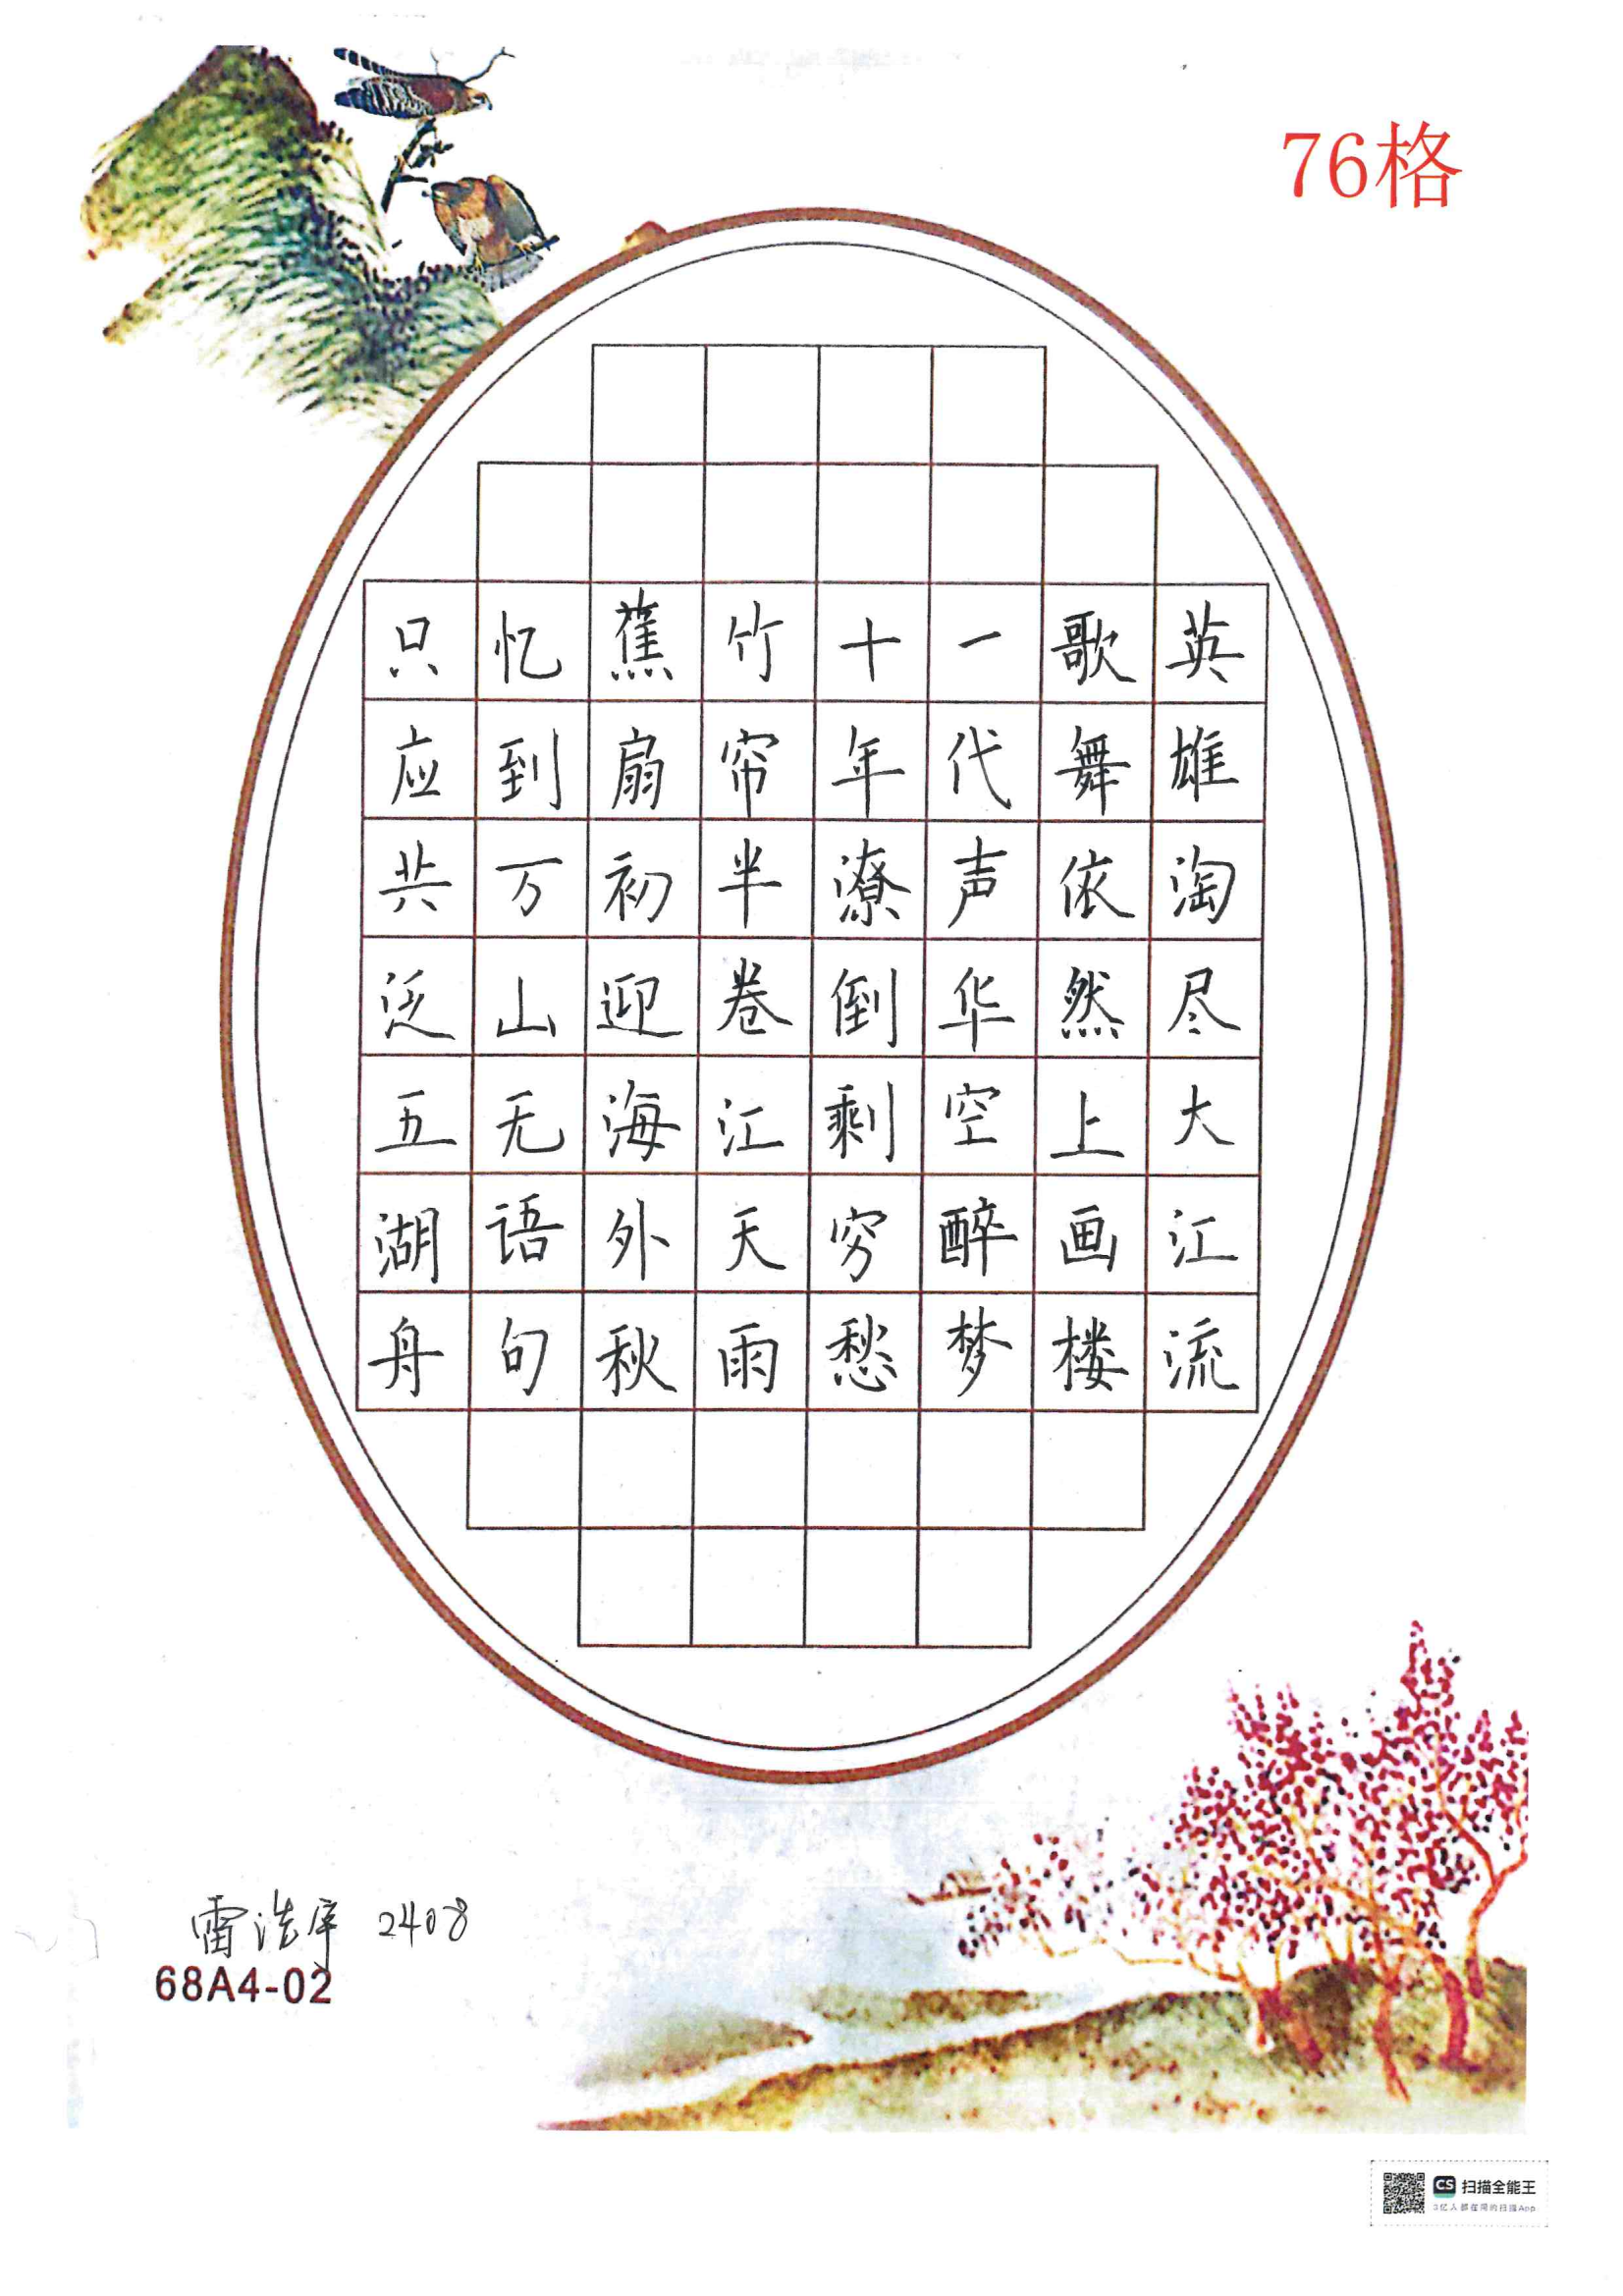 76格
英雄淘尽大江流
歌舞依然上画楼
一代声华空醉梦
十年潦倒剩穷愁
竹帘半卷江天雨
蕉扇初迎海外秋
忆到万山无语句
只应共泛五湖舟
雷浩宇 2408
68A4-02
CS 扫描全能王
3亿人都在用的扫描App